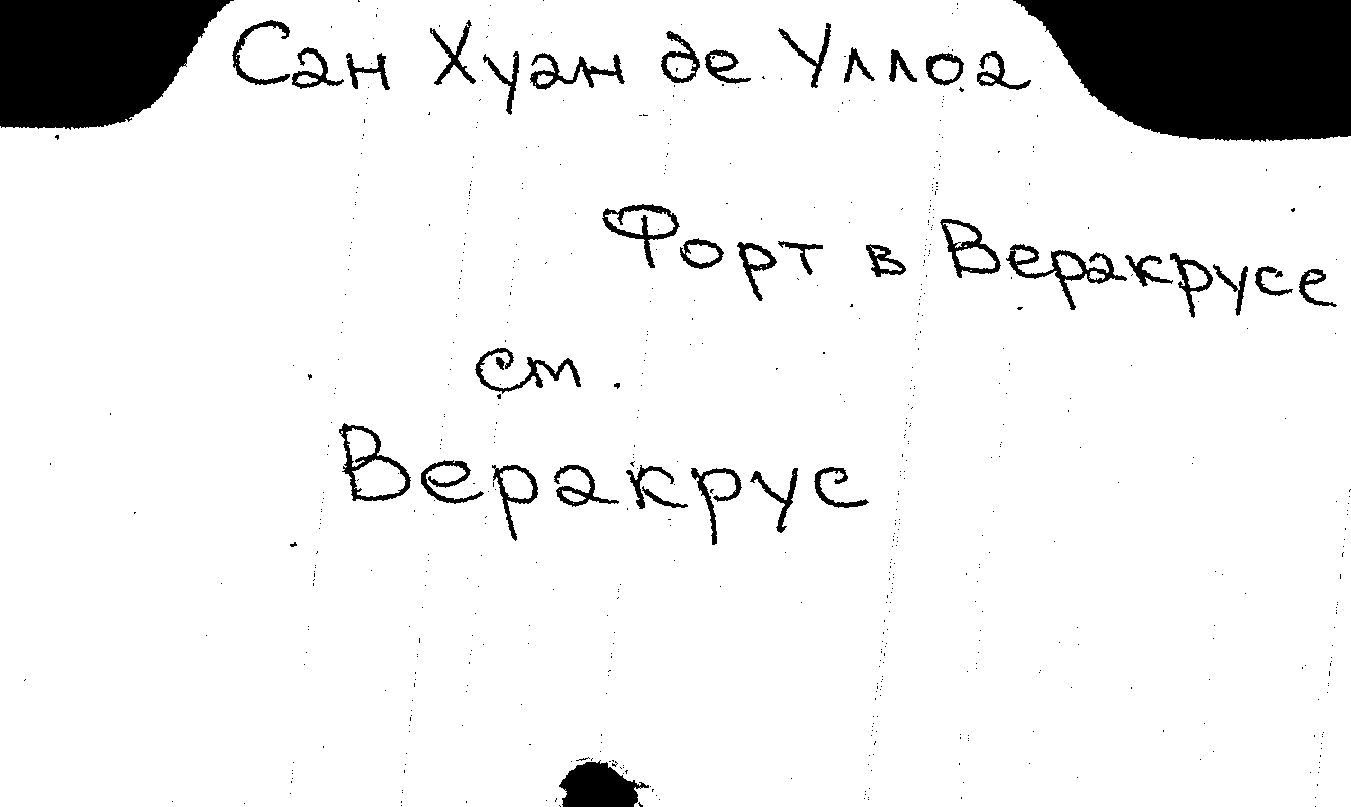 Сан Хуан де Уллоа
Форт в Веракрусе
ст.
Веракрус